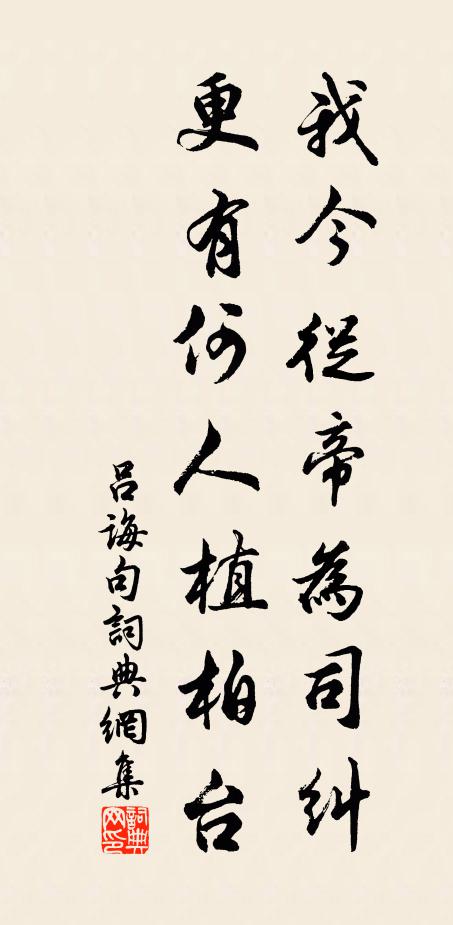 我今從帝為司糾
更有何人植柏台
呂誨句詞典網集
詞典網印